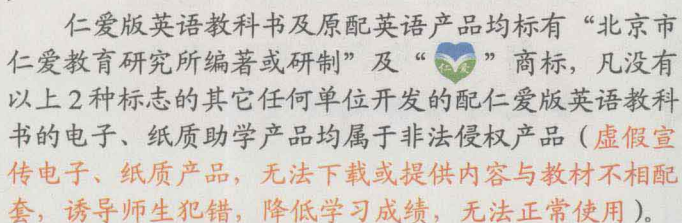 仁爱版英语教科书及原配英语产品均标有“北京市
仁爱教育研究所编著或研制”及“仁爱”商标，凡没有
以上2种标志的其它任何单位开发的配仁爱版英语教科
书的电子、纸质助学产品均属于非法侵权产品（虚假宣
传电子、纸质产品，无法下载或提供内容与教材不相配
套，诱导师生犯错，降低学习成绩，无法正常使用）。